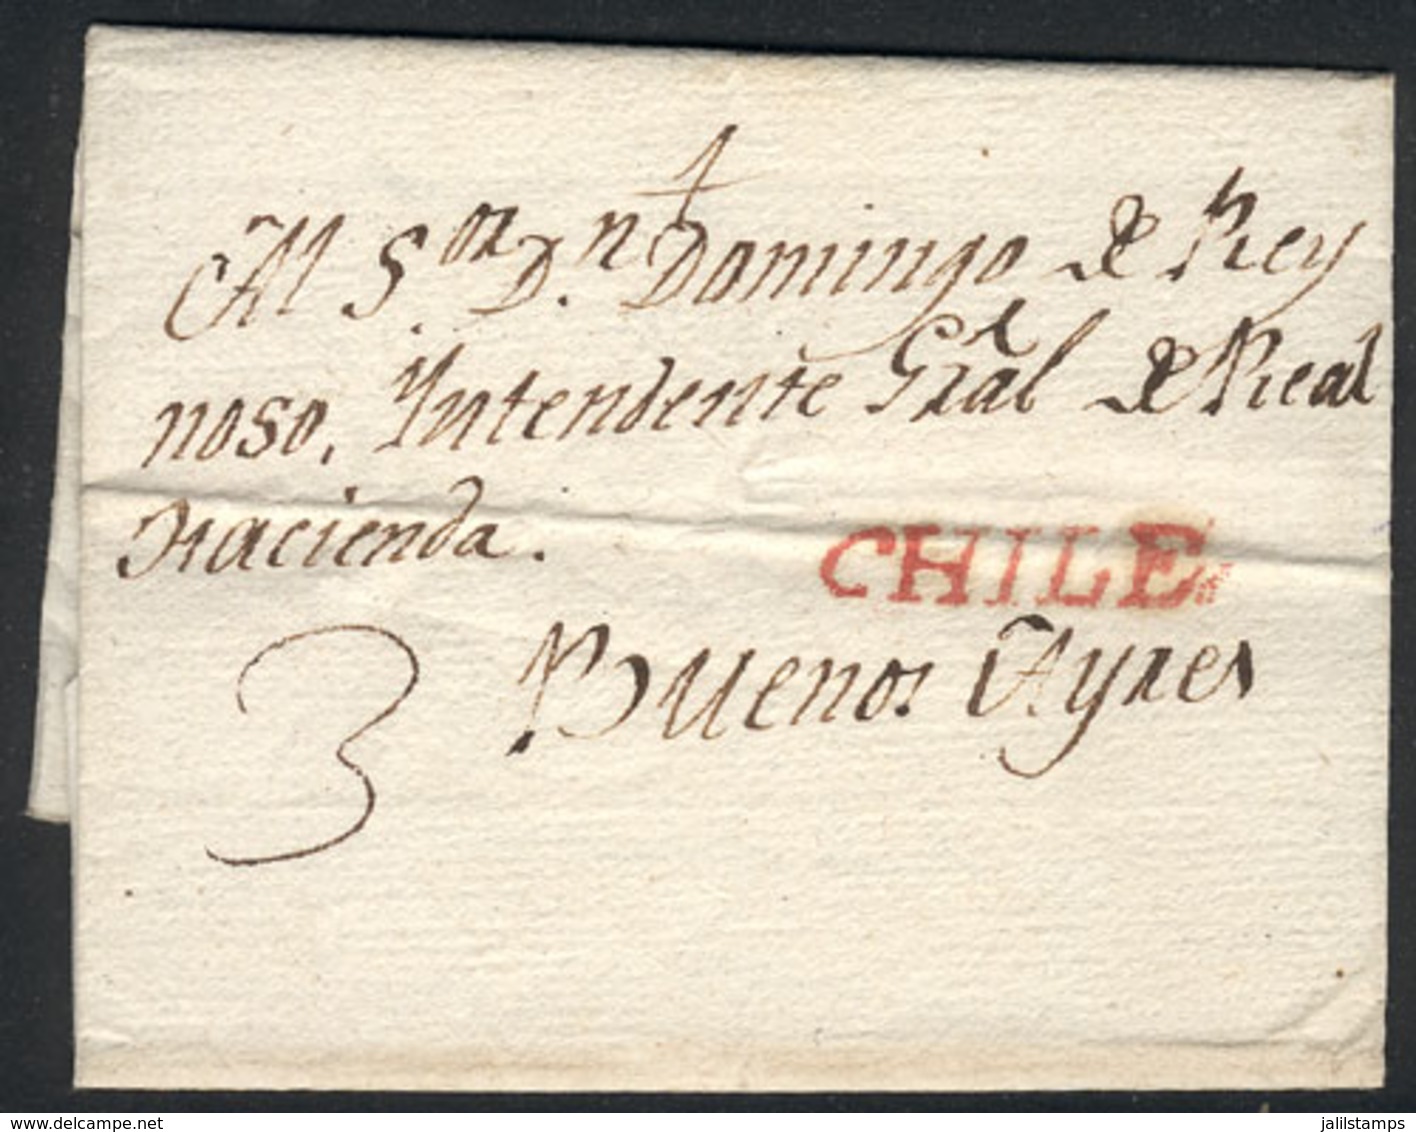 Al S.or D.n Domingo de Rey
noso, Yntendente Gral de Real
Hacienda.
CHILE
Buenos Ayres
3
www.delcampe.net
jalilstamps